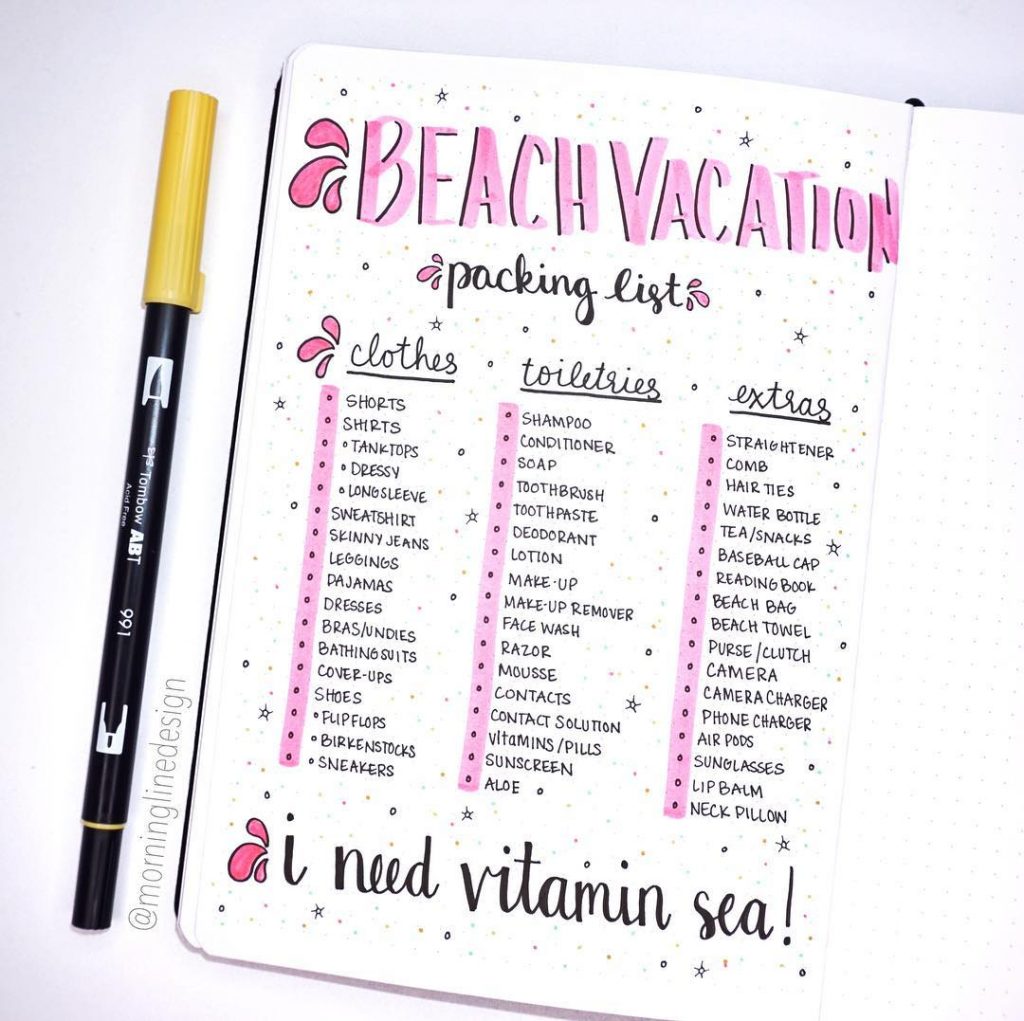 BEACH VACATION
packing list
clothes
SHORTS
SHIRTS
TANKTOPS
DRESSY
LONGSLEEVE
SWEATSHIRT
SKINNY JEANS
LEGGINGS
PAJAMAS
DRESSES
BRAS/UNDIES
BATHINGSUITS
COVER-UPS
SHOES
FLIPFLOPS
BIRKENSTOCKS
SNEAKERS
toiletries
SHAMPOO
CONDITIONER
SOAP
TOOTHBRUSH
TOOTHPASTE
DEODORANT
LOTION
MAKE-UP
MAKE-UP REMOVER
FACE WASH
RAZOR
MOUSSE
CONTACTS
CONTACT SOLUTION
VITAMINS/PILLS
SUNSCREEN
ALOE
extras
STRAIGHTENER
COMB
HAIR TIES
WATER BOTTLE
TEA/SNACKS
BASEBALL CAP
READING BOOK
BEACH BAG
BEACH TOWEL
PURSE/CLUTCH
CAMERA
CAMERA CHARGER
PHONE CHARGER
AIR PODS
SUNGLASSES
LIP BALM
NECK PILLOW
i need vitamin sea!
Tombow ABT
Acid Free
991
@morninglinedesign